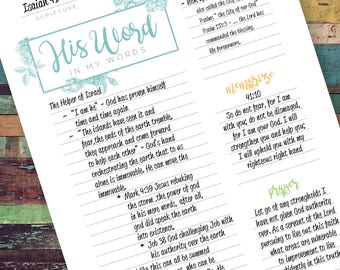 Isaiah 41
SCRIPTURE
His Word
IN MY WORDS
The Helper of Israel
- "I am he" - God has proven himself
time and time again
- "The islands have seen it and
fear, the ends of the earth tremble,
they approach and come forward
to help each other" - God's hand
orchestrating the earth that to as
alone is immovable. He can move the
immovable.
* Mark 4:39 Jesus rebuking
the storm, the power of god
in his mere words, after all,
god did speak the earth
into existence.
* Job 38 God challenging Job with
his authority over the earth
also called the "City of our God"
Psalms 133:3 - the Lord has
commanded the blessing,
life forevermore.
memorize
41:10
So do not fear, for I am
with you; do not be dismayed,
for I am your God. I will
strengthen you and help you;
I will uphold you with my
righteous right hand
prayer
Let go of any strongholds I
have not given God authority
over. As a servant of the Lord
pursuing to live out this faith
what areas are vulnerable
to improvement to live